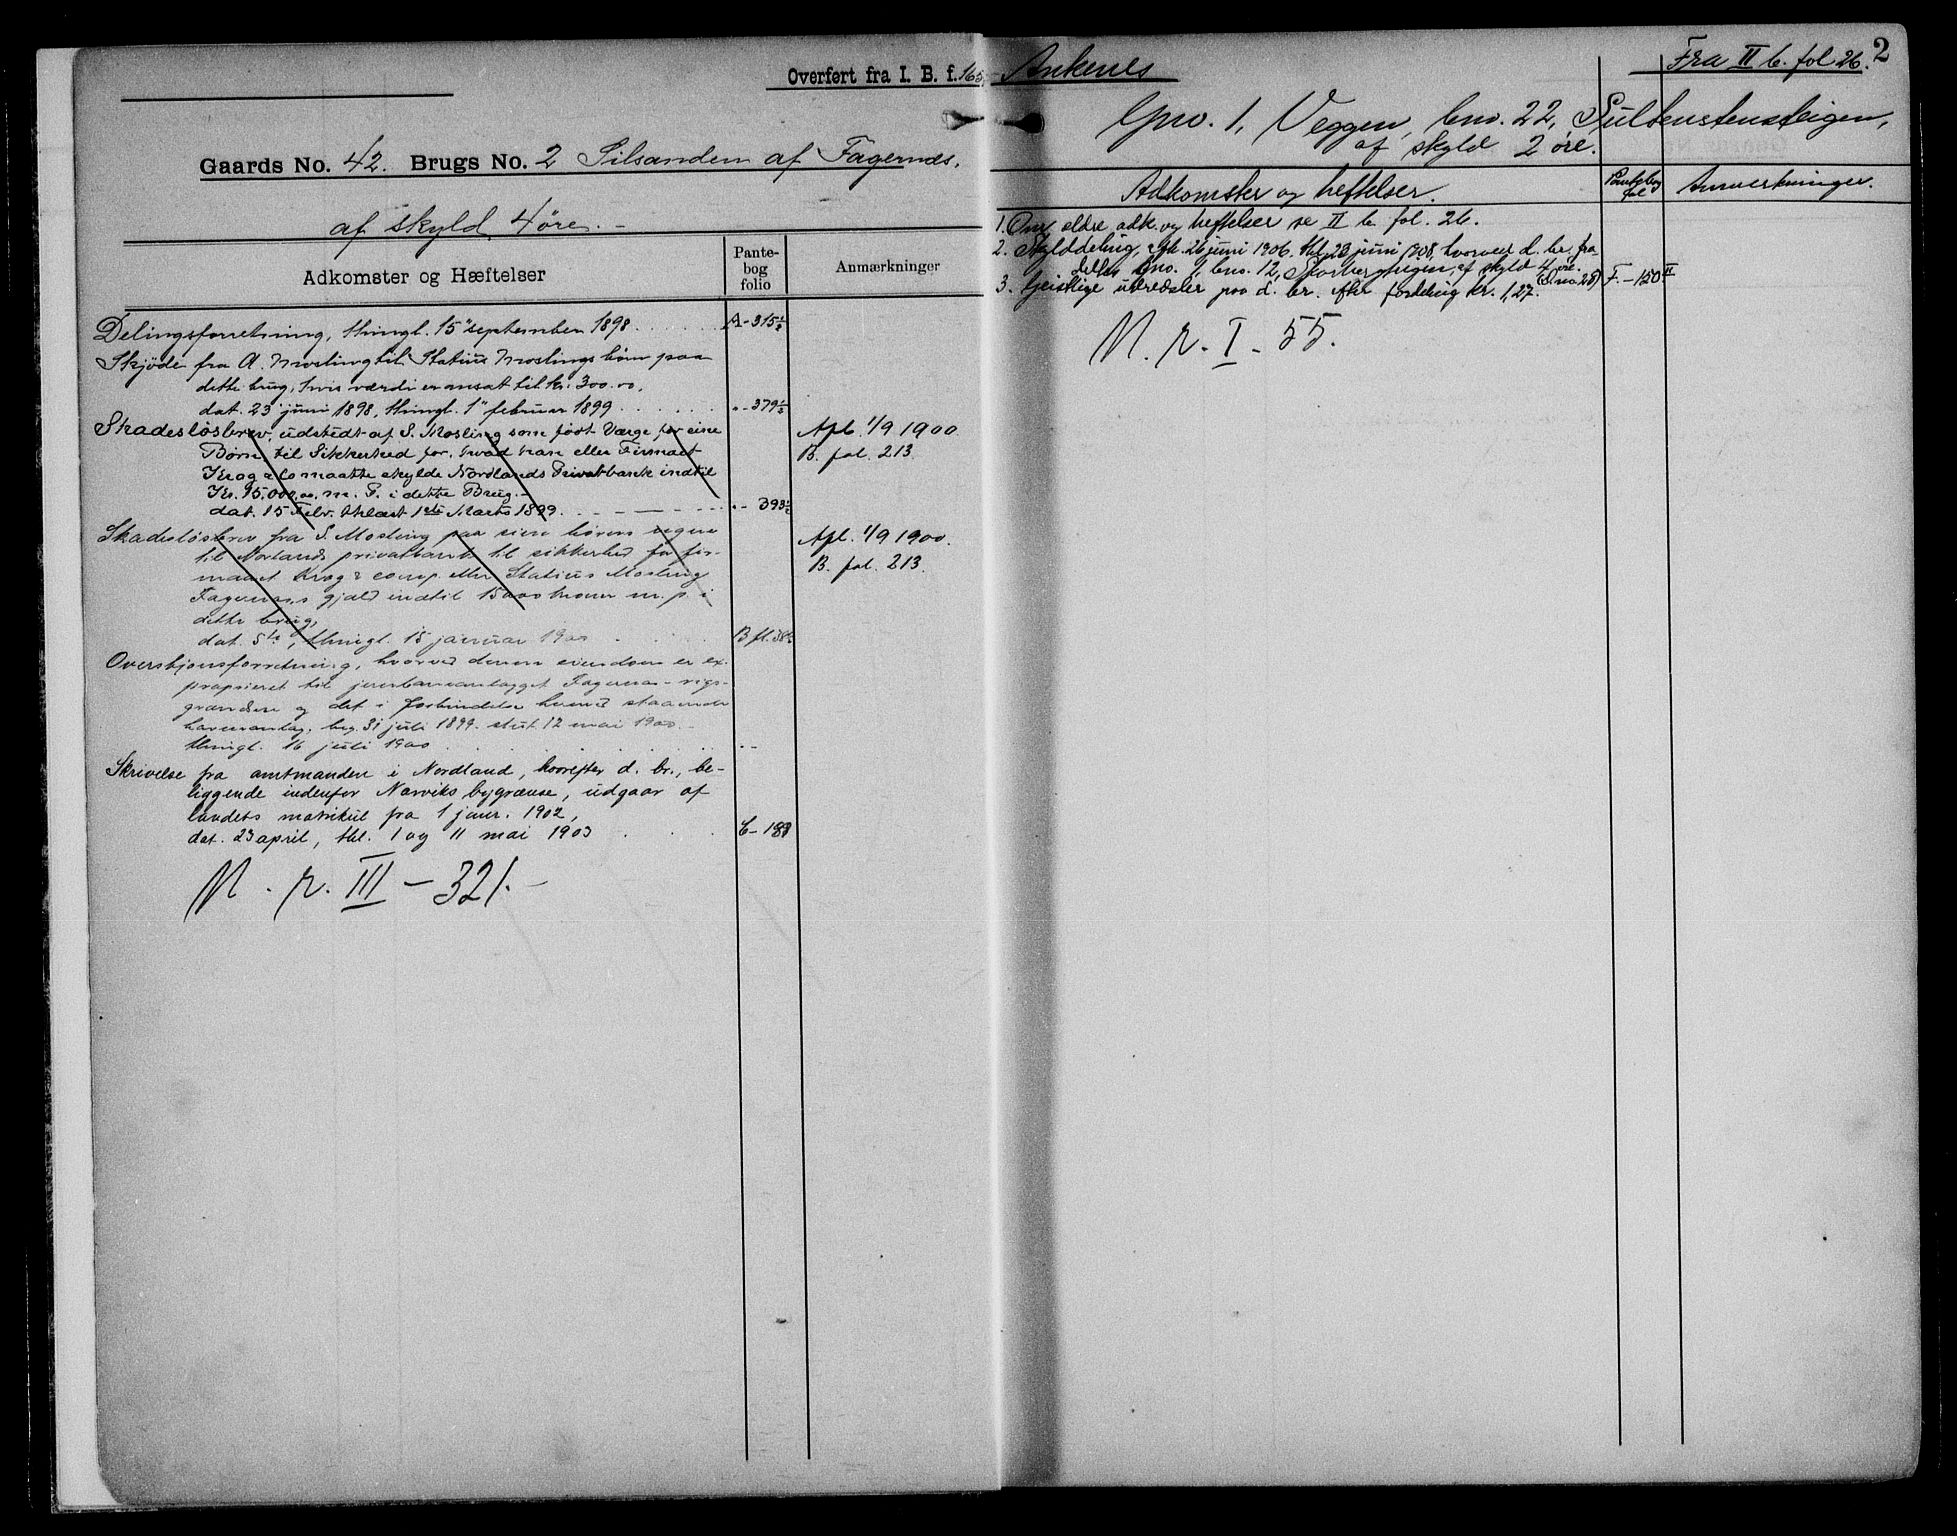 Overført fra I. B. f. 165
Gaards No. 42. Brugs No. 2 Silsanden af Fagernes.
af skyld 4 øre. –
Adkomster og Hæftelser
Pante-
bog
folio
Anmærkninger
Delingsforretning, thingl. 15 september 1898 A - 315½
Skjøde fra A. Mosling til Statius Moslings børn paa
dette brug, hvis værdi er ansat til kr. 300.00,
dat. 23 juni 1898, thingl. 1 februar 1899 " - 379½
Skadesløsbrev, udstedt af S. Mosling som født Værge for sine Apl. 1/9 1900.
Børn til Sikkerhed for, hvad han eller Firmaet B. fol. 213
Krog & Co maatte skylde Nordlands Privatbank indtil
Kr. 15,000.00 m. P. i dette Brug. –
dat. 15 Febr. thlæst 1ste Marts 1899 " - 393½
Skadesløsbrev fra S. Mosling paa sine børns vegne Afl. 1/9 1900.
til Norlands privatbank til sikkerhed for fir- B. fol. 213.
maet Krog & comp eller Statius Mosling
Fagernes gjæld indtil 15000 kroner m. p. i
dette brug,
dat. 5te, thingl. 15 januar 1900 B fl. 58½
Overskjønsforretning, hvorved denne eiendom er ex-
proprieret til jernbaneanlægget Fagernes - rigs-
grændsen og det i forbindelse hermed staaende
havneanlæg, beg. 31 juli 1899. slut. 12 mai 1900
thingl. 16 juli 1900 " -
Skrivelse fra amtmanden i Nordland, hvorefter d. br., be-
liggende indenfor Narviks bygrænse, udgaar af
landets matrikul fra 1 janr. 1902,
dat. 23 april, thl. 1 og 11 mai 1903 C - 183
N. r. III – 321. –
Ankenes
Fra II b. fol. 26. 2
Gno. 1, Veggen, bno. 22,
af skyld 2 øre.
Adkomster og heftelser.
Pantebog
fol
Anmerkninger.
1. Om eldre adk. og heftelser se II b. fol. 26.
2. Skylddeling, afh. 26 juni 1906, thl. 23 juni 1908, hvorved d. br. fra-
deltes gno. 1, bno. 12, af skyld 4 øre.
3. Geistlige utredsler paa d. br. efter fordeling kr. 1,27. F. - 150 II
N. r. I - 55.